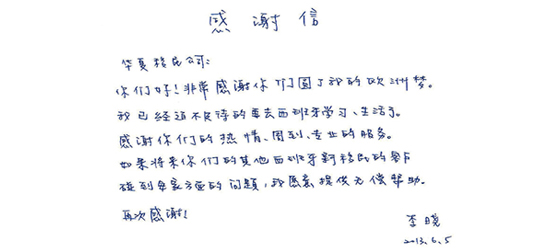 感谢信
华夏移民公司:
你们好!非常感谢你们圆了我的欧洲梦。
我已经迫不及待的要去西班牙学习、生活了。
感谢你们的热情、周到、专业的服务。
如果将来你们的其他西班牙新移民的客户
碰到安家方面的问题,我愿意提供无偿帮助。
再次感谢!
李晓
2013.6.5